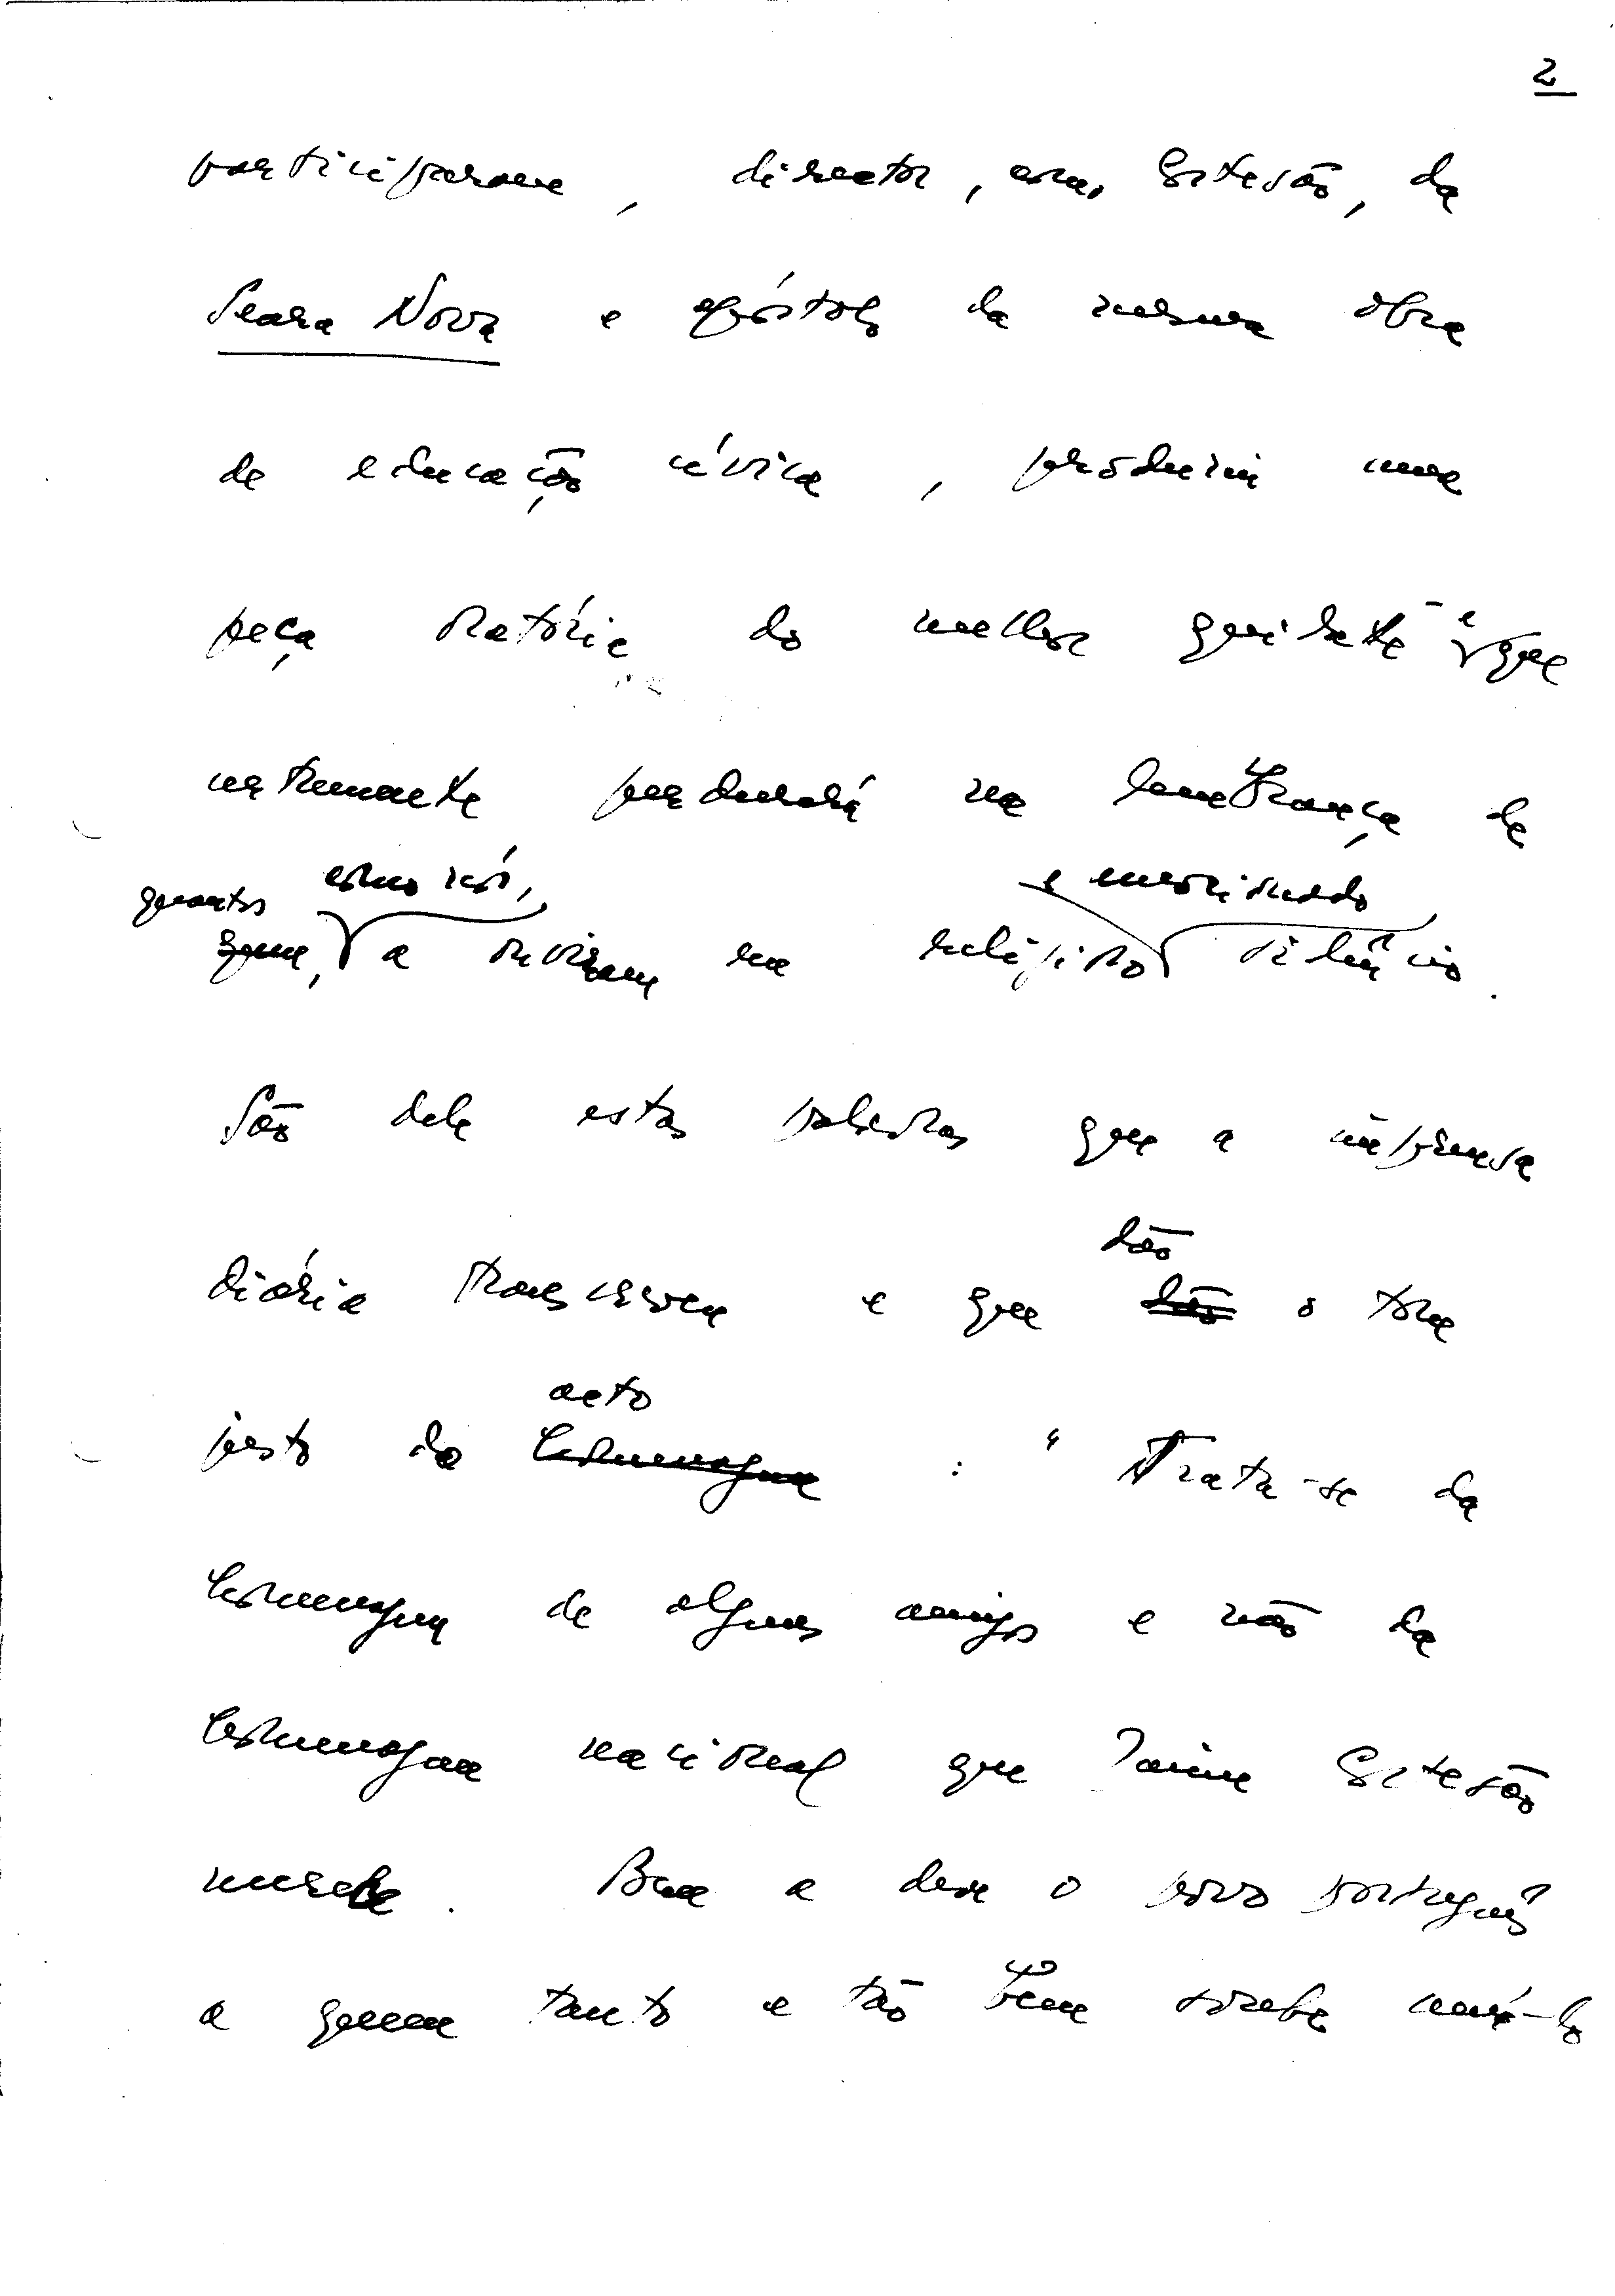 2
participaram, director, com Cortesão, da
Seara Nova e apóstolo da mesma obra
de educação cívica, produziu uma
peça oratória do melhor quilate e que
certamente perdurará na lembrança de
quantos como nós, e emocionado
quem, a ouviram em religioso silêncio.
São dele estas palavras que a imprensa
dão
diária transcreveu e que dão o tom
acto
justo da homenagem : "Trata-se da
homenagem de alguns amigos e não da
homenagem nacional que Jaime Cortesão
merece. Bem a deve o povo português
a quem tanto e tão bem soube amá-lo